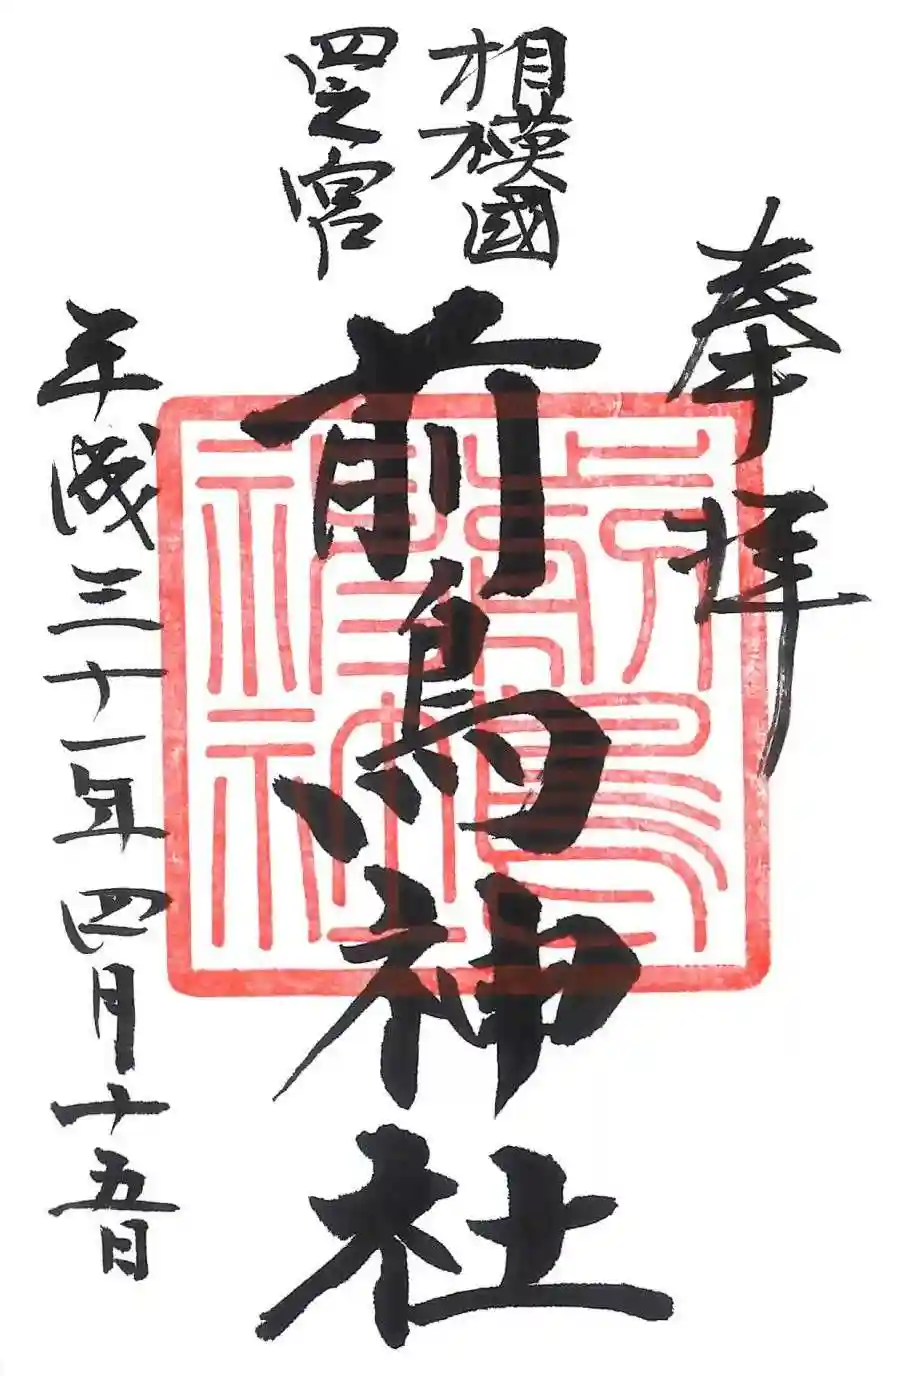 奉拝
相模國
四之宮
前鳥神社
平成三十一年四月十五日
前鳥
神社